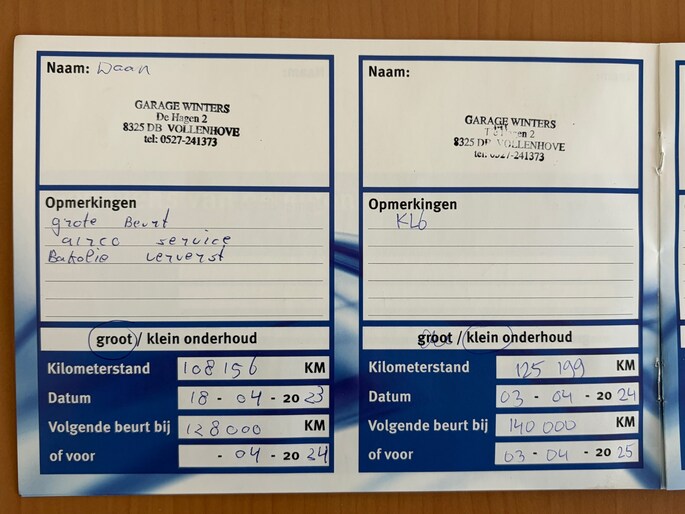 Naam: Daan
GARAGE WINTERS
De Hagen 2
8325 DB VOLLENHOVE
tel: 0527-241373
Opmerkingen
grote Beurt
airco service
Bakolie ververst
groot / klein onderhoud
Kilometerstand 108156 KM
Datum 18 - 04 - 2023
Volgende beurt bij 128000 KM
of voor - 04 - 2024
Naam:
GARAGE WINTERS
2
8325 DB VOLLENHOVE
tel: 0527-241373
Opmerkingen
groot / klein onderhoud
Kilometerstand 125 199 KM
Datum 03 - 04 - 2024
Volgende beurt bij 140 000 KM
of voor 03 - 04 - 2025